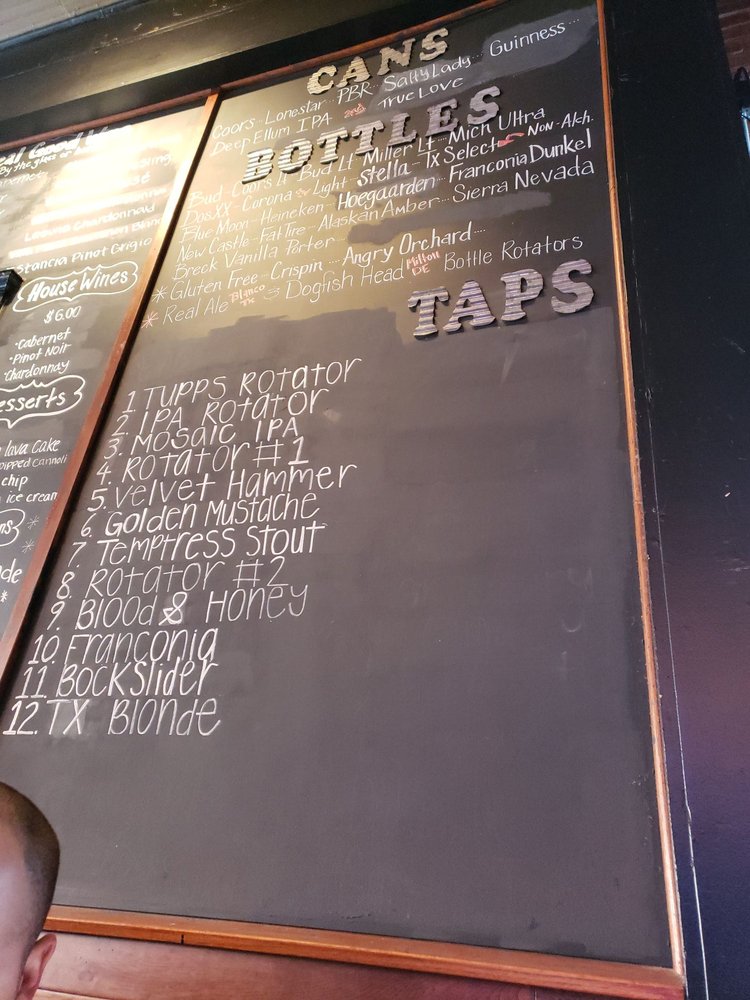 By the glass or
Chardonnay
Stancia Pinot Grigio
House Wines
$6.00
·Cabernet
·Pinot Noir
·Chardonnay
esserts
lava Cake
Dipped Cannoli
chip
ice cream
CANS
Coors... Lonestar... PBR... Salty Lady... Guinness...
Deep Ellum IPA True Love
BOTTLES
Bud - Coors Lt - Bud Lt - Miller Lt - Mich Ultra
Dos XX - Corona Light - Stella - TX Select Non-Alch.
Blue Moon - Heineken - Hoegaarden - Franconia Dunkel
New Castle - Fat Tire - Alaskan Amber - Sierra Nevada
Breck Vanilla Porter
* Gluten Free - Crispin ... Angry Orchard....
* Real Ale Blanco TX Dogfish Head Milton DE Bottle Rotators
TAPS
1 Tupps Rotator
2 IPA Rotator
3. Mosaic IPA
4. Rotator #1
5. Velvet Hammer
6. Golden Mustache
7. Temptress Stout
8. Rotator #2
9. Blood & Honey
10. Franconia
11. Bockslider
12. TX Blonde